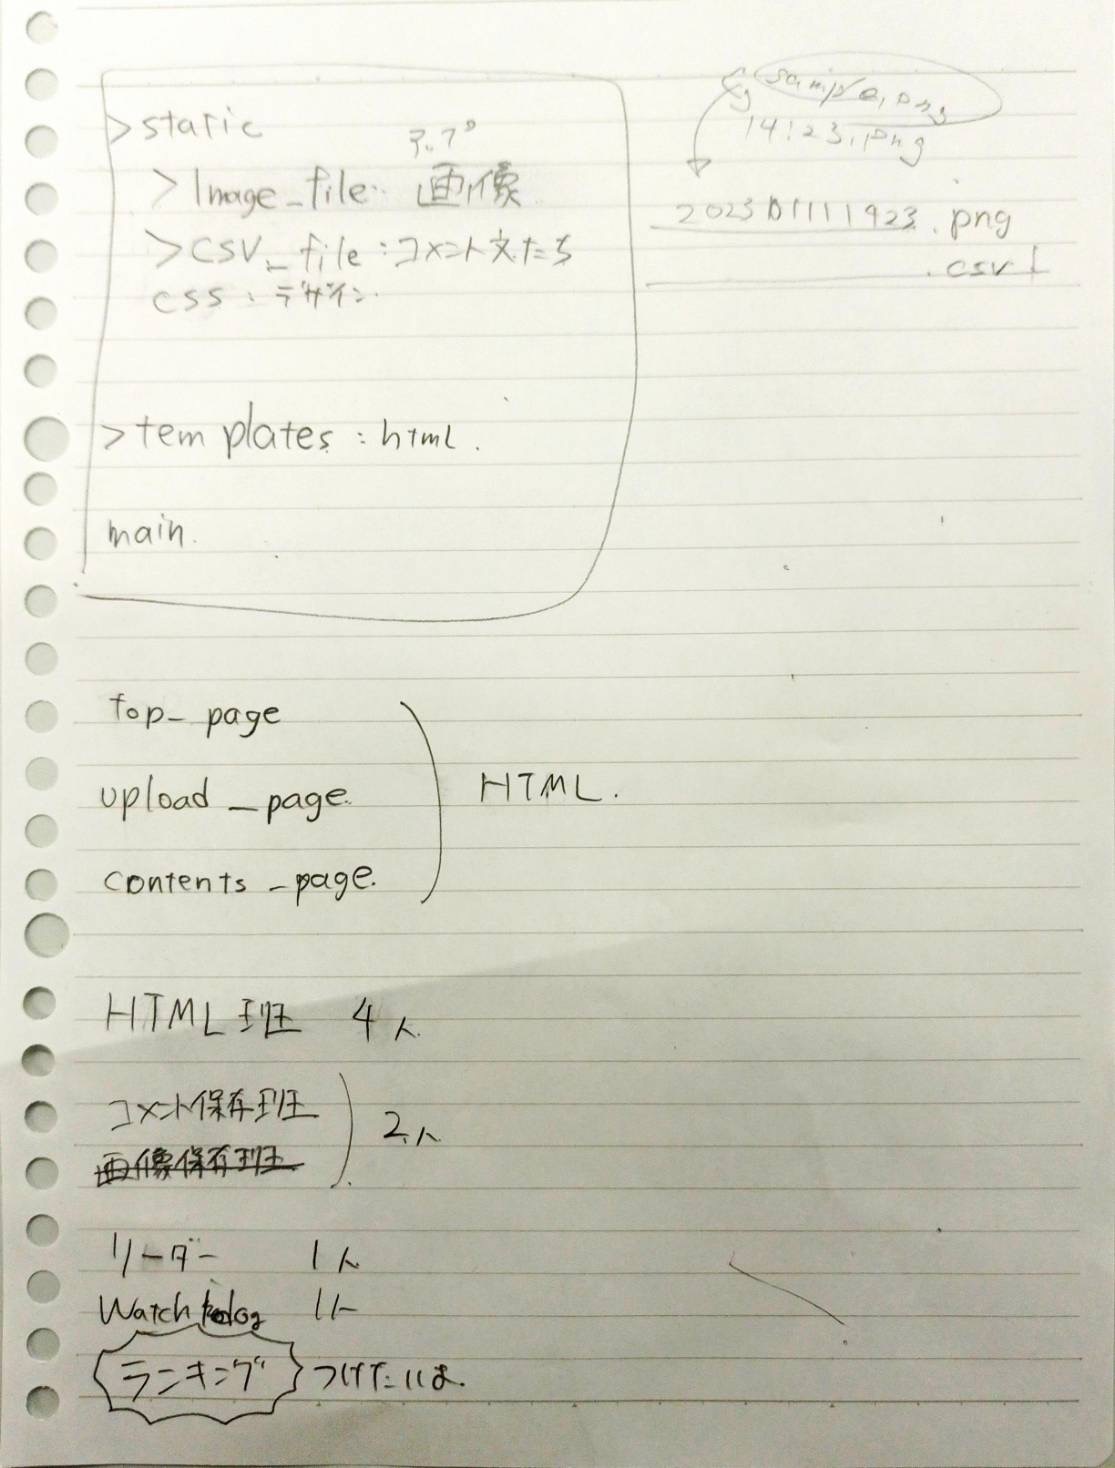 >static
アップ
>Image_file: 画像
>CSV_file:コメント文たち
css:デザイン.
>templates:html.
main.
sample.png
14:23.png
202301111923.png
.csv
top_page
upload_page.
contents_page.
HTML.
HTML班 4人
コメント保存班
画像保存班
2人
リーダー 1人
Watchdog 1人
ランキング つけたいよ.